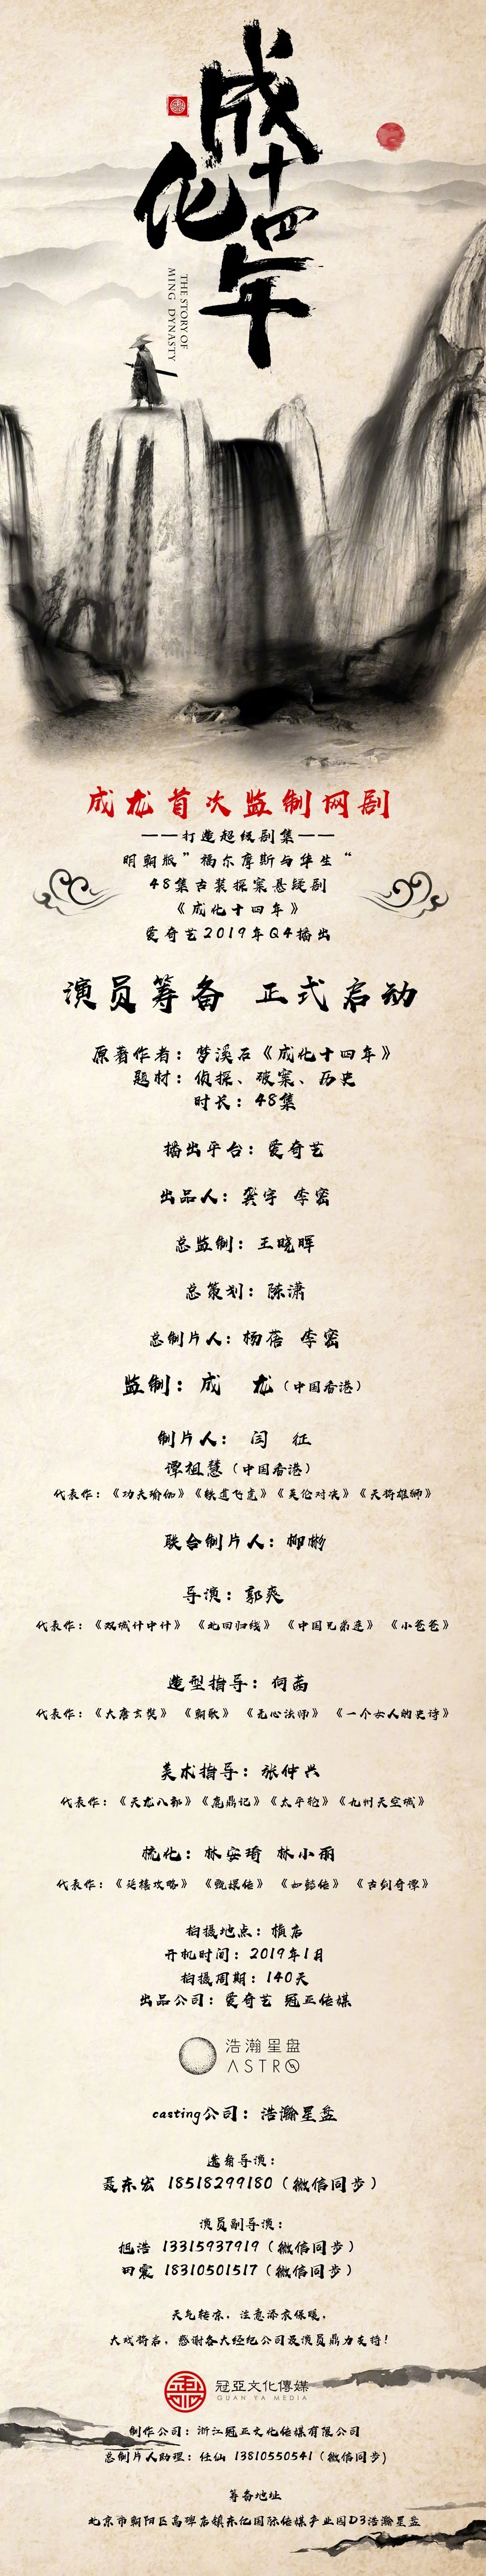 成化十四年
THE STORY OF
MING DYNASTY
成龙首次监制网剧
——打造超级剧集——
明朝版”福尔摩斯与华生“
48集古装探案悬疑剧
《成化十四年》
爱奇艺2019年Q4播出
演员筹备 正式启动
原著作者：梦溪石《成化十四年》
题材：侦探、破案、历史
时长：48集
播出平台：爱奇艺
出品人：龚宇 李密
总监制：王晓晖
总策划：陈潇
总制片人：杨蓓 李密
监制：成 龙（中国香港）
制片人： 闫 征
谭祖慧（中国香港）
代表作：《功夫瑜伽》《铁道飞虎》《英伦对决》《天将雄狮》
联合制片人：柳彬
导演：郭爽
代表作：《双城计中计》 《北回归线》 《中国兄弟连》 《小爸爸》
造型指导：何茜
代表作：《大唐玄奘》 《朝歌》 《无心法师》 《一个女人的史诗》
美术指导：张仲兴
代表作：《天龙八部》《鹿鼎记》《太平轮》《九州天空城》
梳化：林安琦 林小丽
代表作：《延禧攻略》 《甄嬛传》 《如懿传》 《古剑奇谭》
拍摄地点：横店
开机时间：2019年1月
拍摄周期：140天
出品公司：爱奇艺 冠亚传媒
浩瀚星盘
ASTRO
casting公司：浩瀚星盘
选角导演：
聂东宏 18518299180（微信同步）
演员副导演：
旭浩 13315937919（微信同步）
田震 18310501517（微信同步）
天气转凉，注意添衣保暖，
大戏将启，感谢各大经纪公司及演员鼎力支持！
冠亞文化傳媒
GUAN YA MEDIA
制作公司：浙江冠亚文化传媒有限公司
总制片人助理：任仙 13810550541（微信同步）
筹备地址
北京市朝阳区高碑店镇东亿国际传媒产业园D3浩瀚星盘